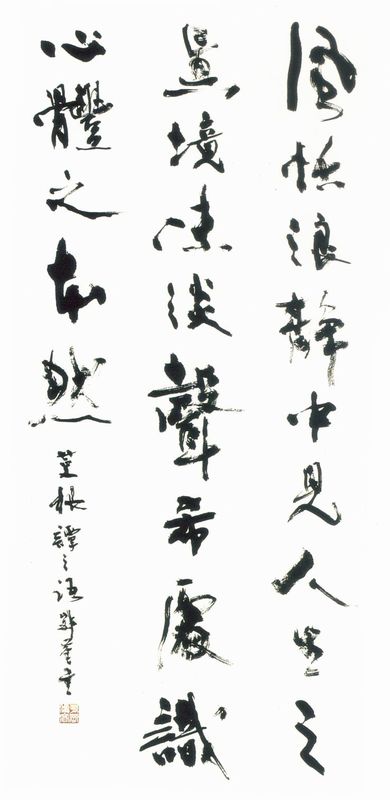 風恬浪靜中見人生之
真境味淡聲希處識
心體之本然
菜根譚之語